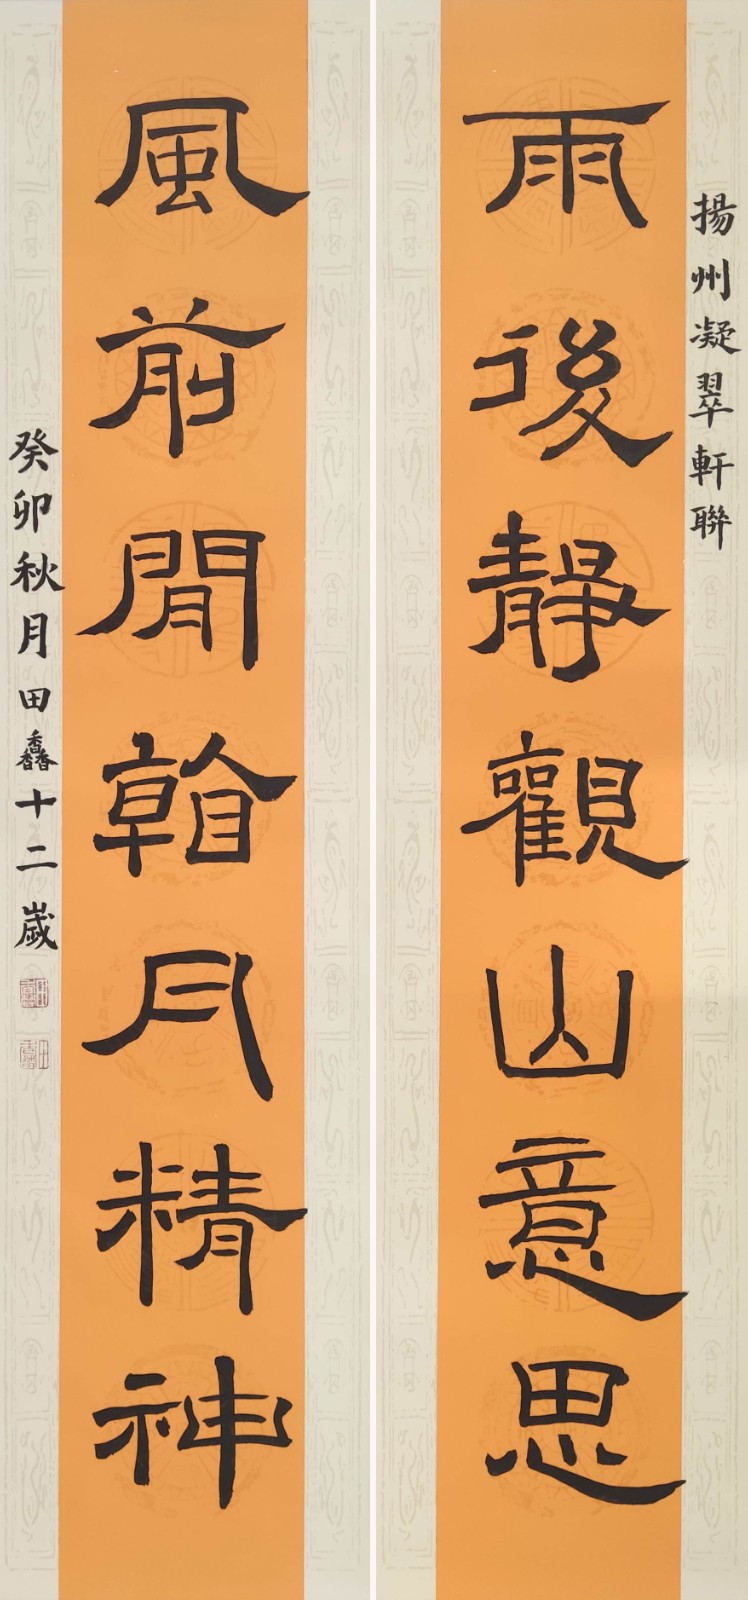 揚州凝翠軒聯
雨後靜觀山意思
風前閒看月精神
癸卯秋月田馫十二歲